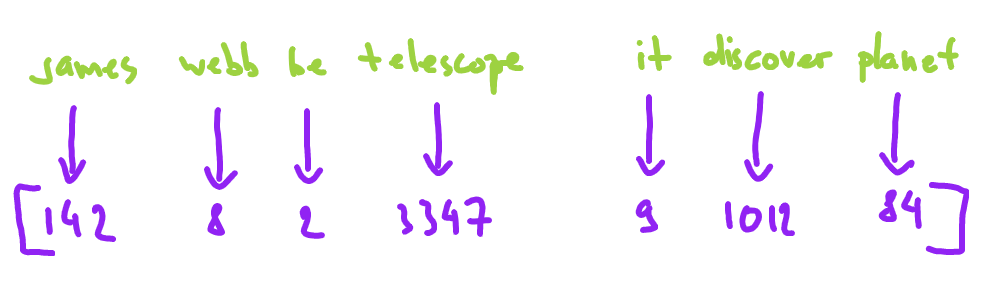 james webb be telescope it discover planet
[142 8 2 3347 9 1012 84]